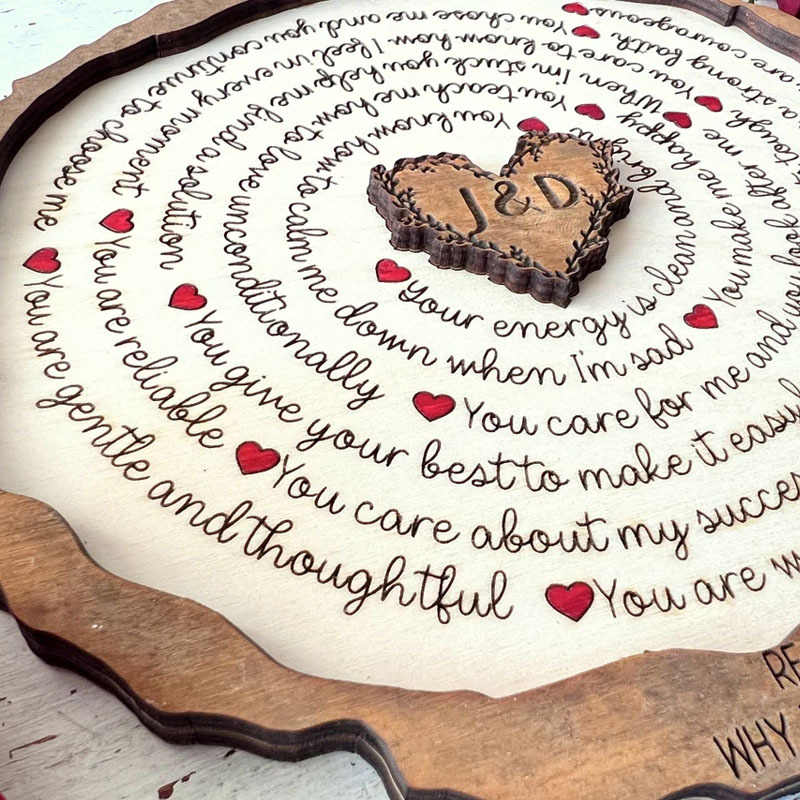 J & D
Your energy is clean and bright
You know how to calm me down when I'm sad
You make me happy
You teach me how to love unconditionally
You care for me and you look after me
When I'm stuck you help me find a solution
You give your best to make it
tough
You care to know how I feel in every moment
You are reliable
You care about my
a strong faith
You chose me and you continue to choose me
You are gentle and thoughtful
You are
are courageous
WHY